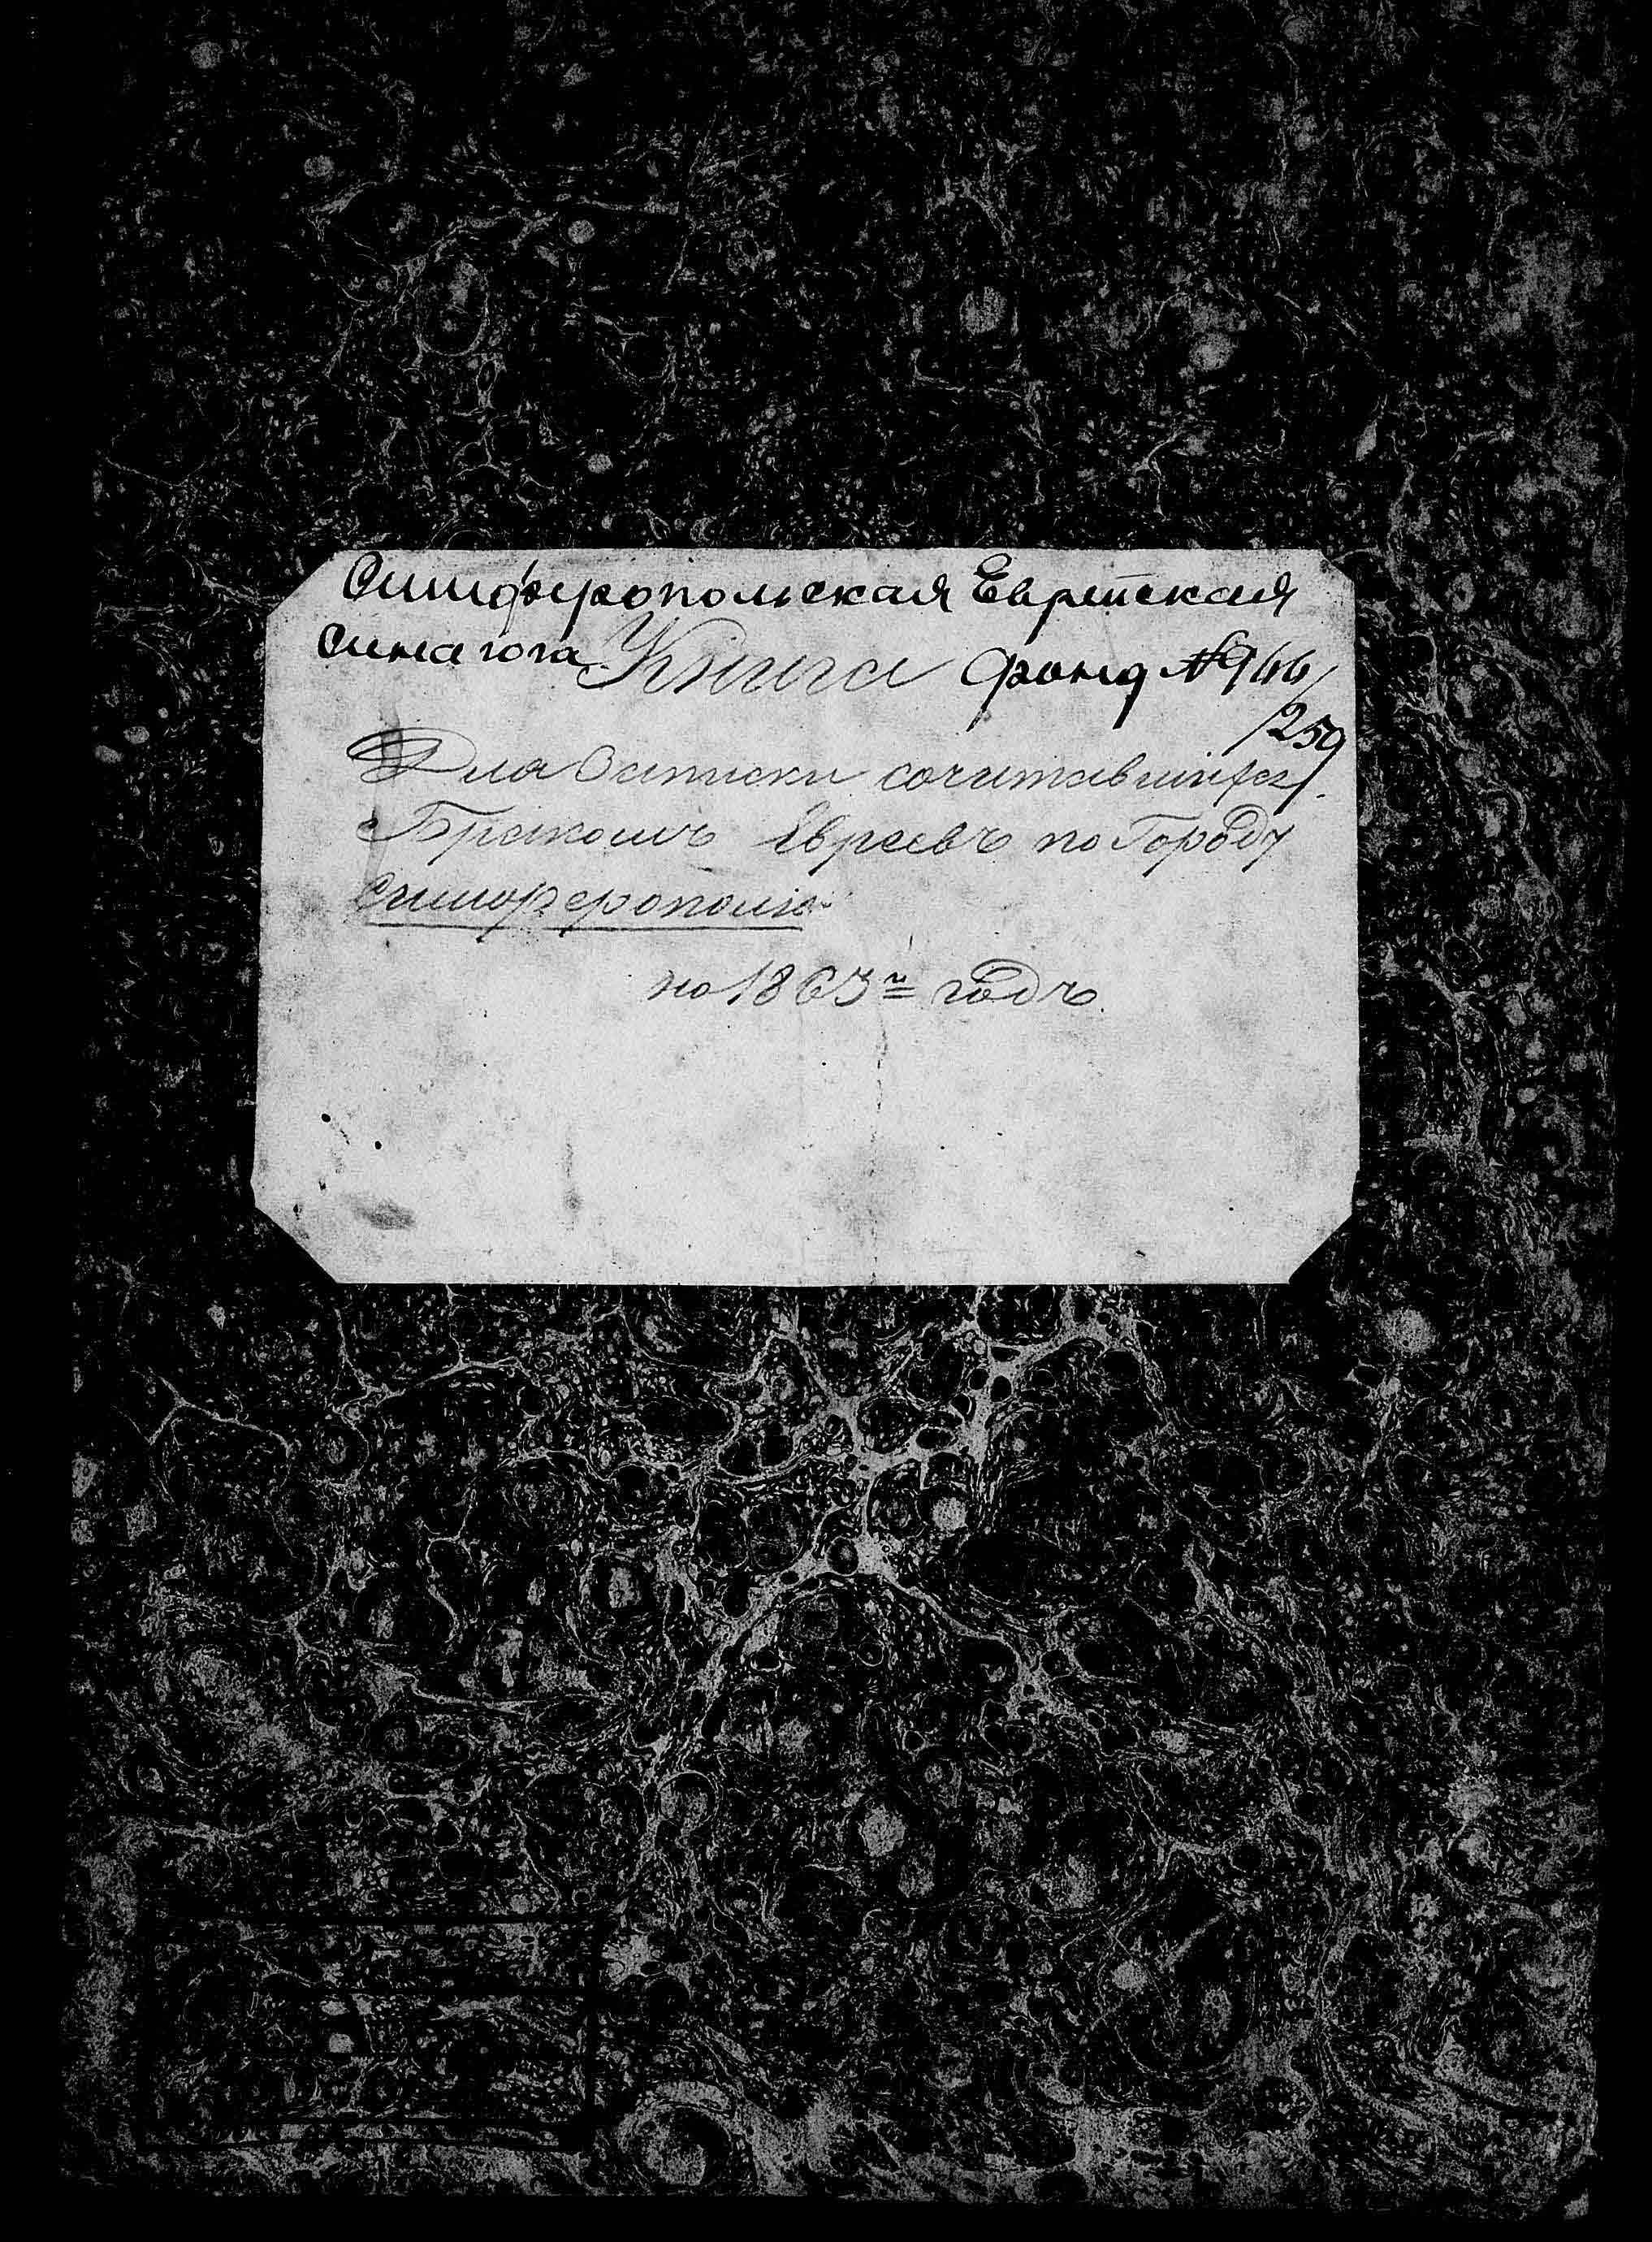 Симферопольская Еврейская
синагога Книга Фонд №
/259
Для Записки сочитавшихся
Бракомъ Евреевъ по Городу
Симферополю
на 1863й годъ.